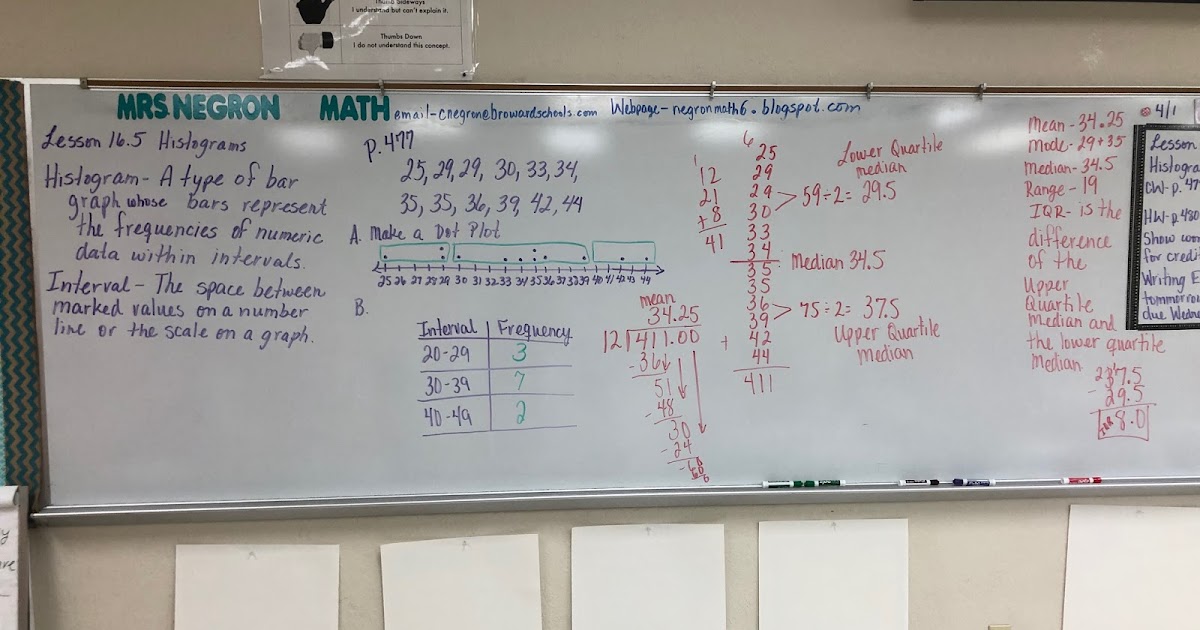 Thumb Sideways
I understand but can't explain it.
Thumbs Down
I do not understand this concept.
MRS NEGRON MATH email-cnegron@browardschools.com Webpage-negronmath6.blogspot.com
Lesson 16.5 Histograms
Histogram- A type of bar
graph whose bars represent
the frequencies of numeric
data within intervals.
Interval- The space between
marked values on a number
line or the scale on a graph.
p.477
25, 29, 29, 30, 33, 34,
35, 35, 36, 39, 42, 44
A. Make a Dot Plot
25 26 27 28 29 30 31 32 33 34 35 36 37 38 39 40 41 42 43 44
B.
Interval Frequency
20-29 3
30-39 7
40-49 2
mean
34.25
12 411.00
-36
51
-48
30
-24
60
1
12
21
+8
41
6
25
29
29
30
33
34
35
35
36
39
+ 42
44
411
59÷2= 29.5
Lower Quartile
median
Median 34.5
75÷2= 37.5
Upper Quartile
Median
Mean-34.25
mode-29+35
Median-34.5
Range-19
IQR- is the
difference
of the
Upper
Quartile
Median and
the lower quartile
Median
37.5
- 29.5
IQR 8.0
4/1
Lesson
CW-p.
HW-p480
Show
for
Writing
due